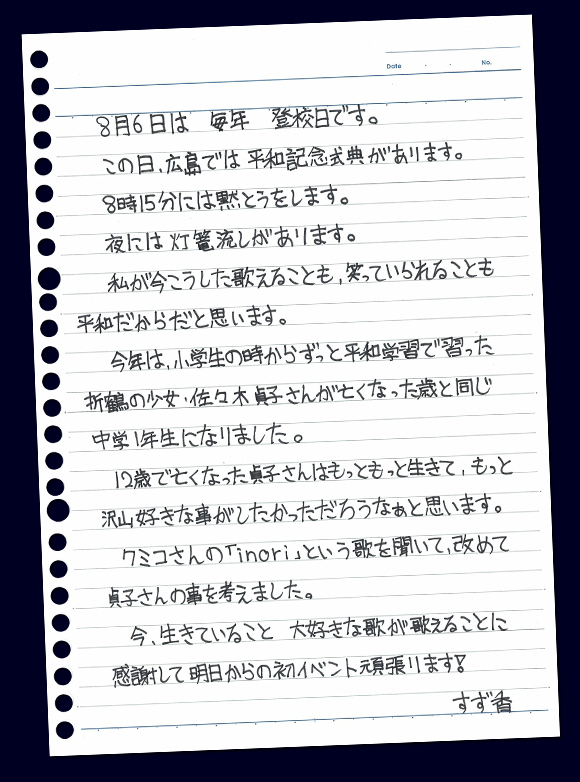 Date ・ ・ No.
8月6日は 毎年 登校日です。
この日、広島では 平和記念式典があります。
8時15分には黙とうをします。
夜には 灯篭流しがあります。
私が今こうした歌えることも、笑っていられることも
平和だからだと思います。
今年は、小学生の時からずっと平和学習で習った
折鶴の少女・佐々木貞子さんが亡くなった歳と同じ
中学1年生になりました。
12歳で亡くなった貞子さんはもっともっと生きて、もっと
沢山好きな事がしたかっただろうなぁと思います。
クミコさんの「inori」という歌を聞いて、改めて
貞子さんの事を考えました。
今、生きていること 大好きな歌が歌えることに
感謝して 明日からの初イベント頑張ります!
すず香